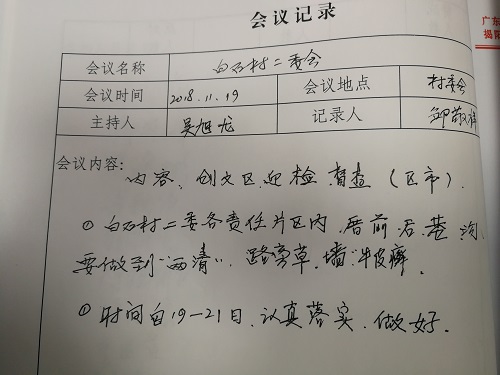 会议记录
广东
揭阳
会议名称 白石村二委会
会议时间 2018.11.19 会议地点 村委会
主持人 吴旭龙 记录人 邱敬
会议内容:
内容、创文区迎检、督查（区市）.
① 白石村二委各责任片区内,厝前后、巷沟
要做到“两清”、路旁草、墙“牛皮癣.
① 时间自19-21日、认真落实、做好.